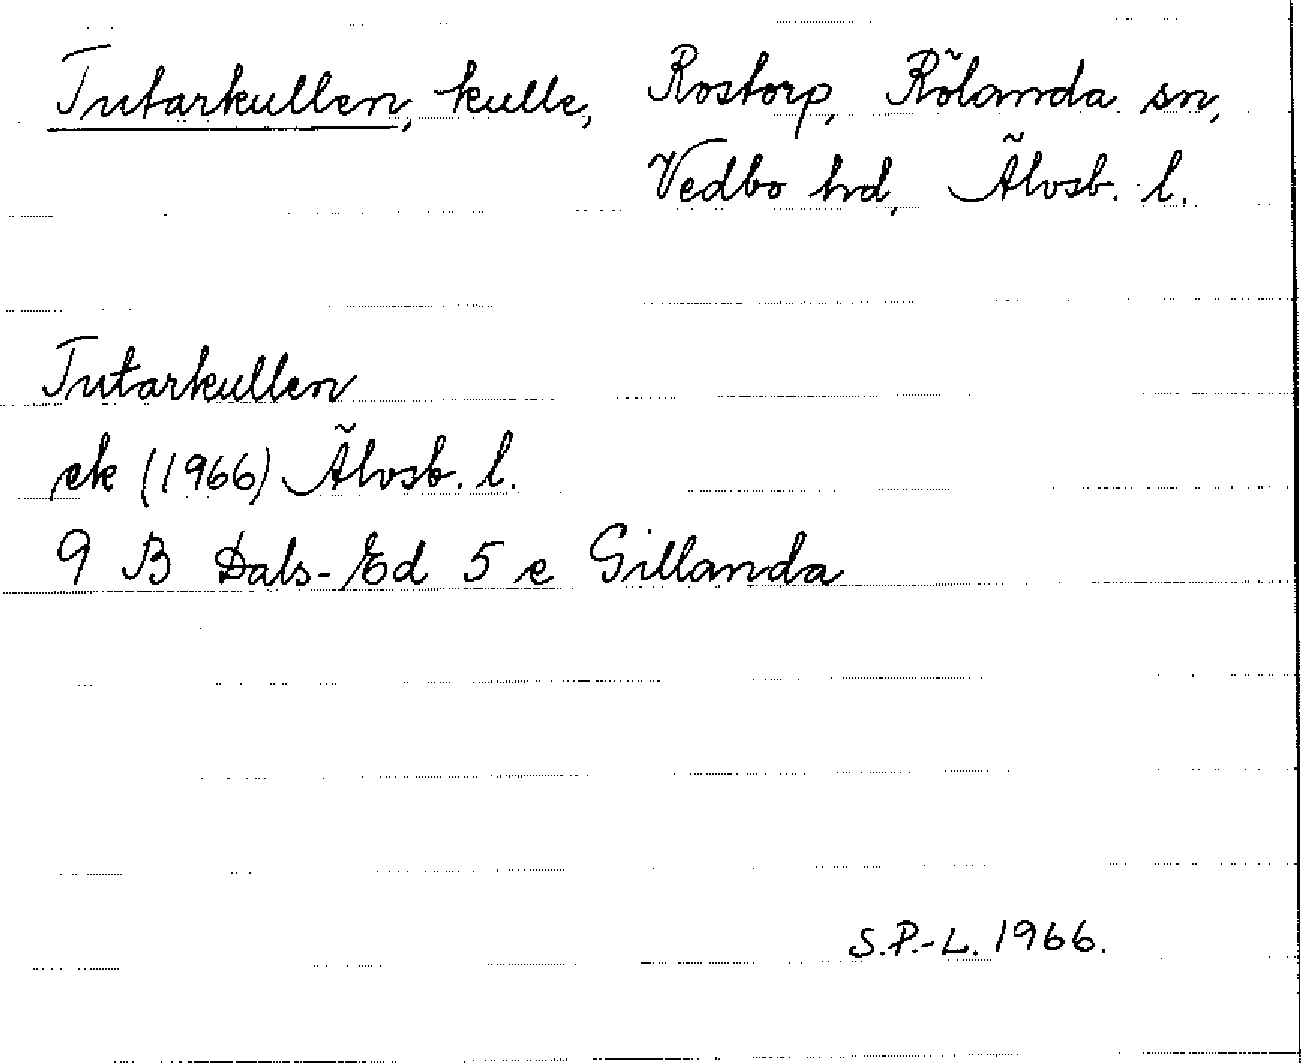 Tutarkullen, kulle, Rostorp, Rölanda sn,
Vedbo hd, Älvsb. l.
Tutarkullen
ek (1966) Älvsb. l.
9 B Dals-Ed 5 e Gillanda
S.P.-L. 1966.